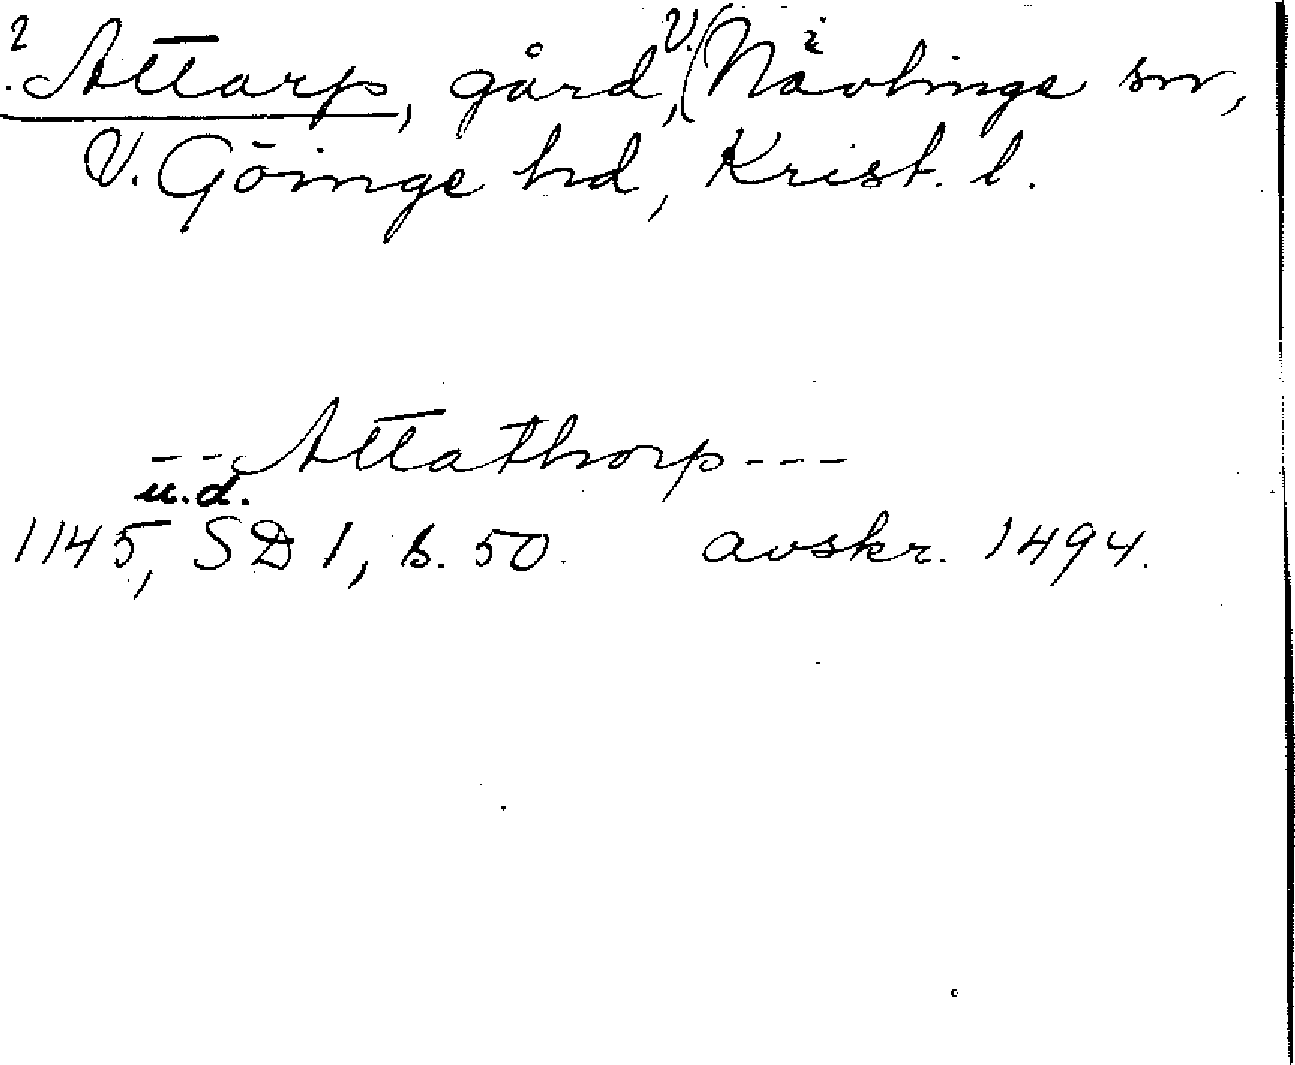 ? Attarp, gård, V. (Nävlinge sn,
V. Göinge hd, Krist. l.
---Attathorp---
u.d.
1145, SD 1, s. 50. avskr. 1494.